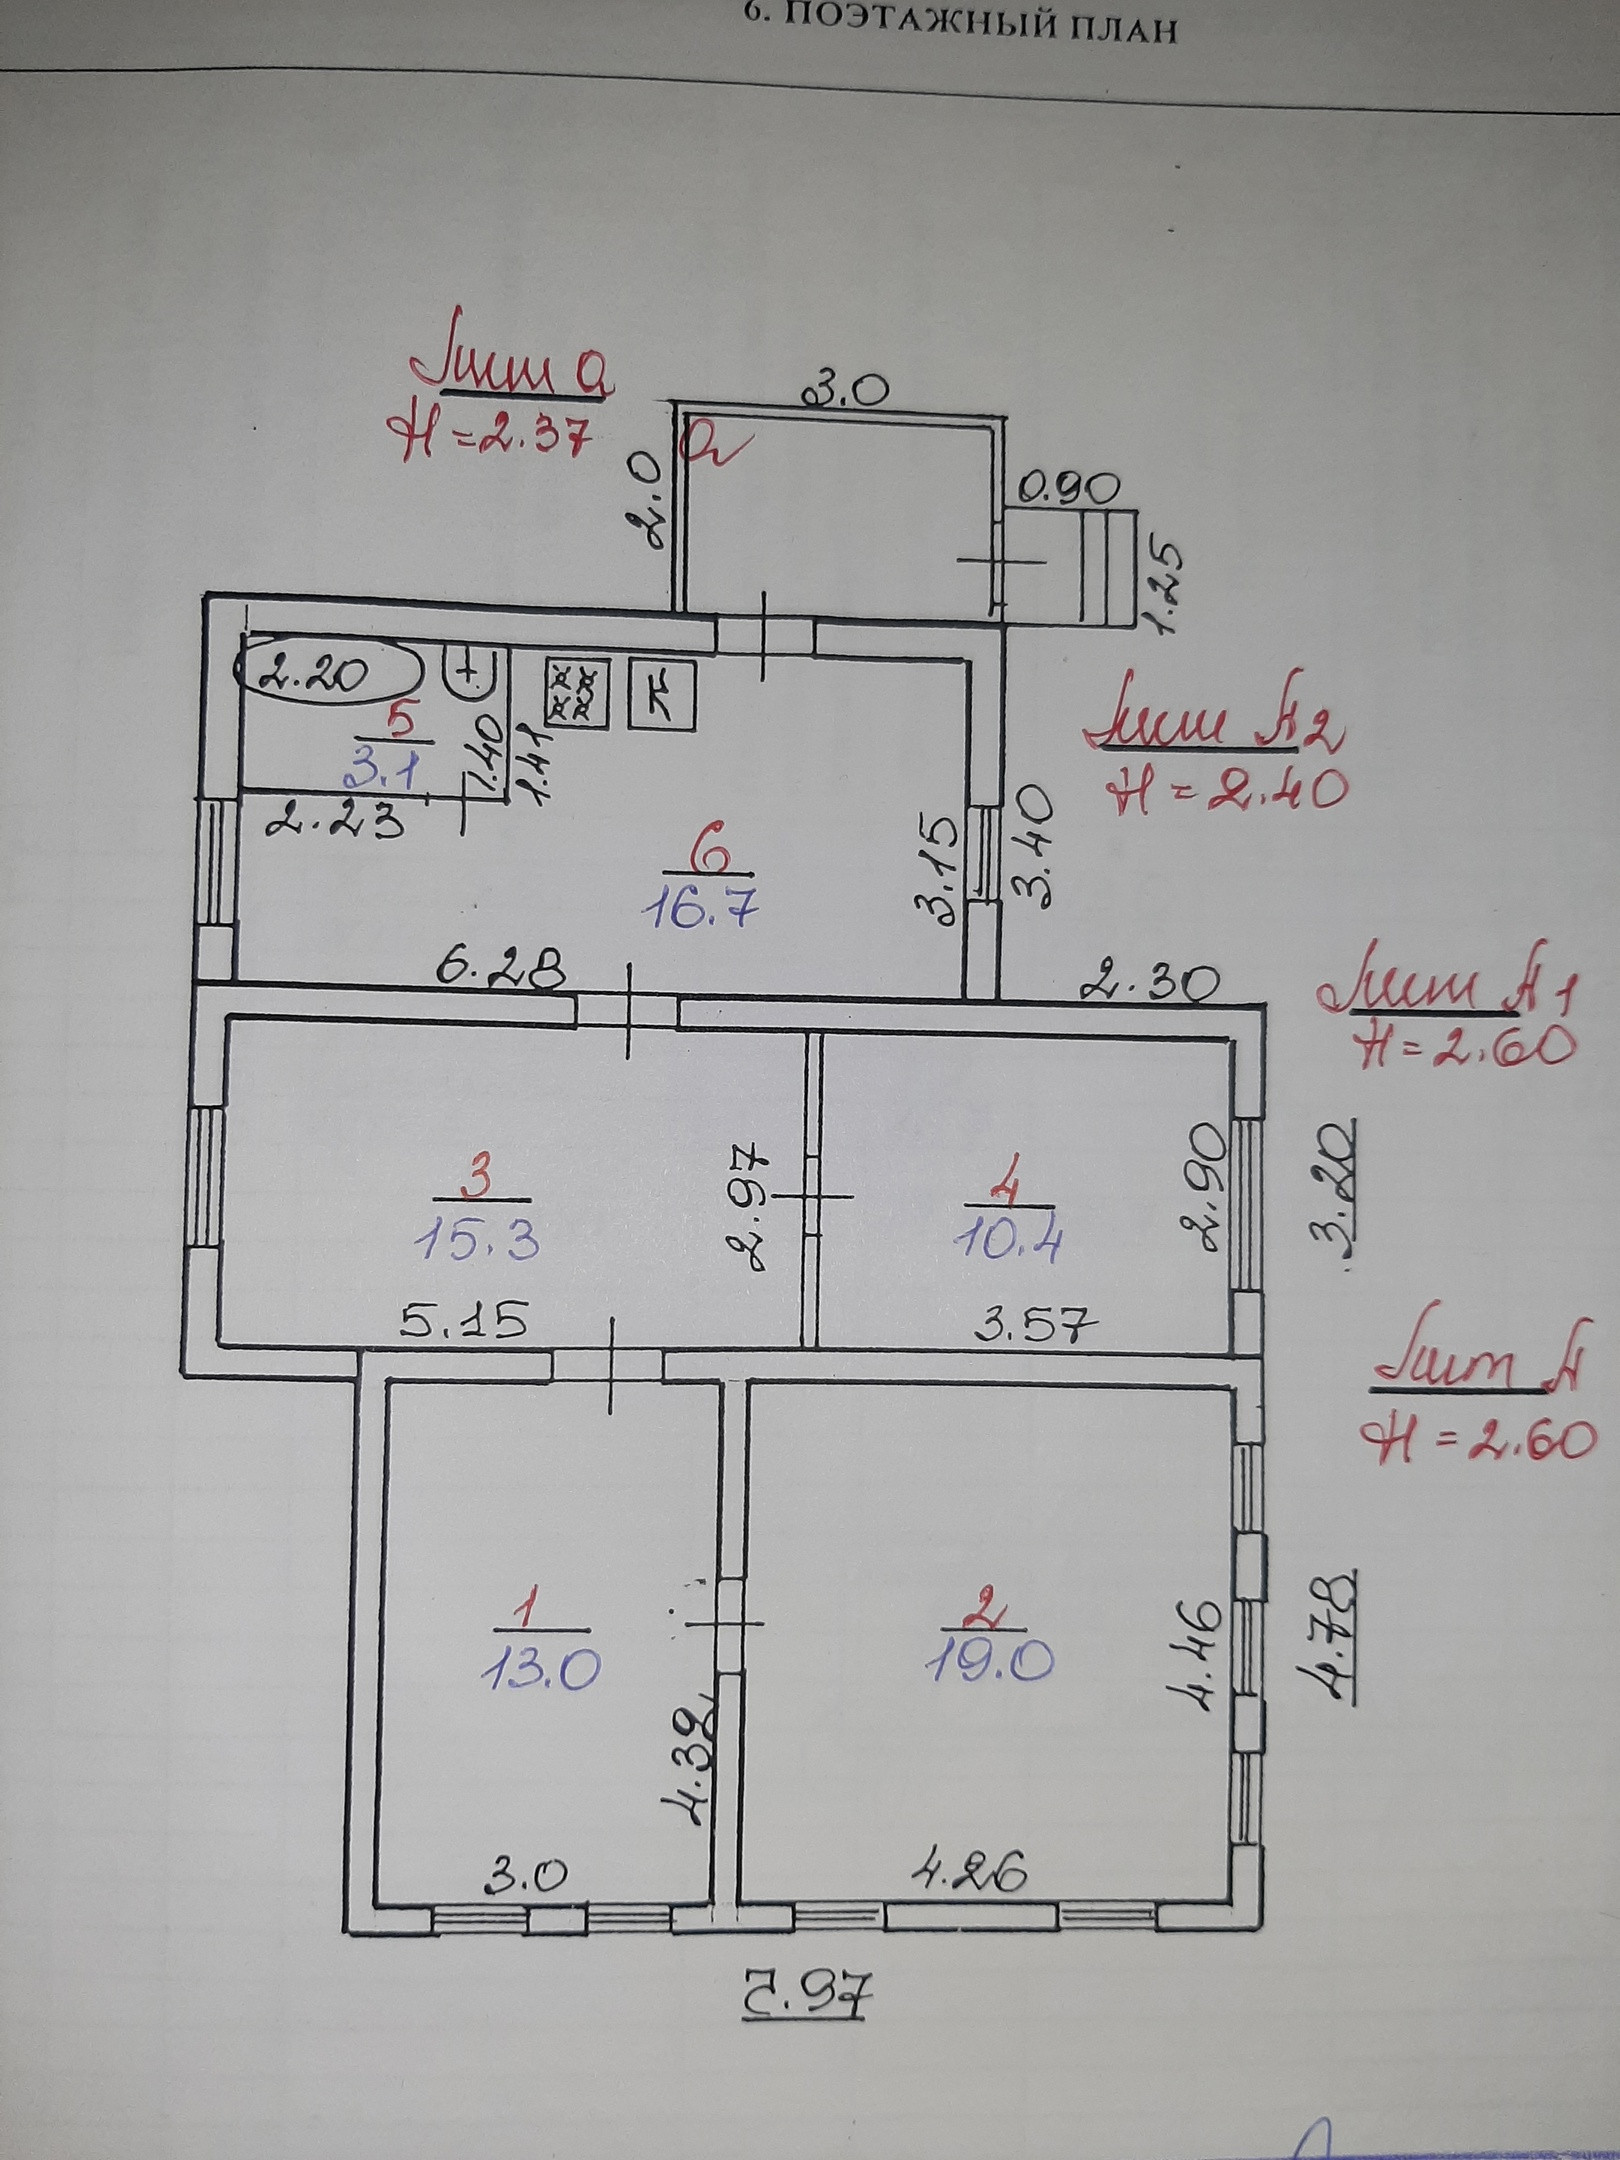 6. ПОЭТАЖНЫЙ ПЛАН
Лит а
H=2.37
3.0
а
2.0
0.90
1.25
2.20
5
3.1
1.40
1.41
2.23
Лит А2
H=2.40
6
16.7
3.15
3.40
6.28
2.30
Лит А1
H=2.60
3
15.3
2.97
4
10.4
2.90
3.20
5.15
3.57
Лит А
H=2.60
1
13.0
2
19.0
4.46
4.78
4.32
3.0
4.26